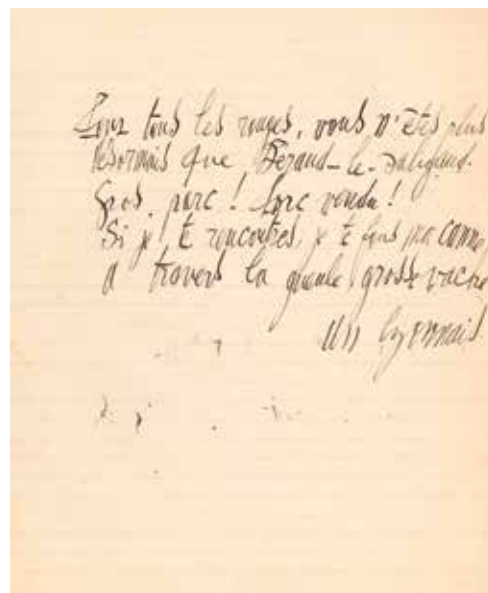 Pour tous les rouges, vous n'êtes plus
désormais que Béraud-le-Saligaud.
Gros porc ! Porc vendu !
Si je te rencontres, je te fous ma canne
à travers la gueule grosse vache
Un lyonnais